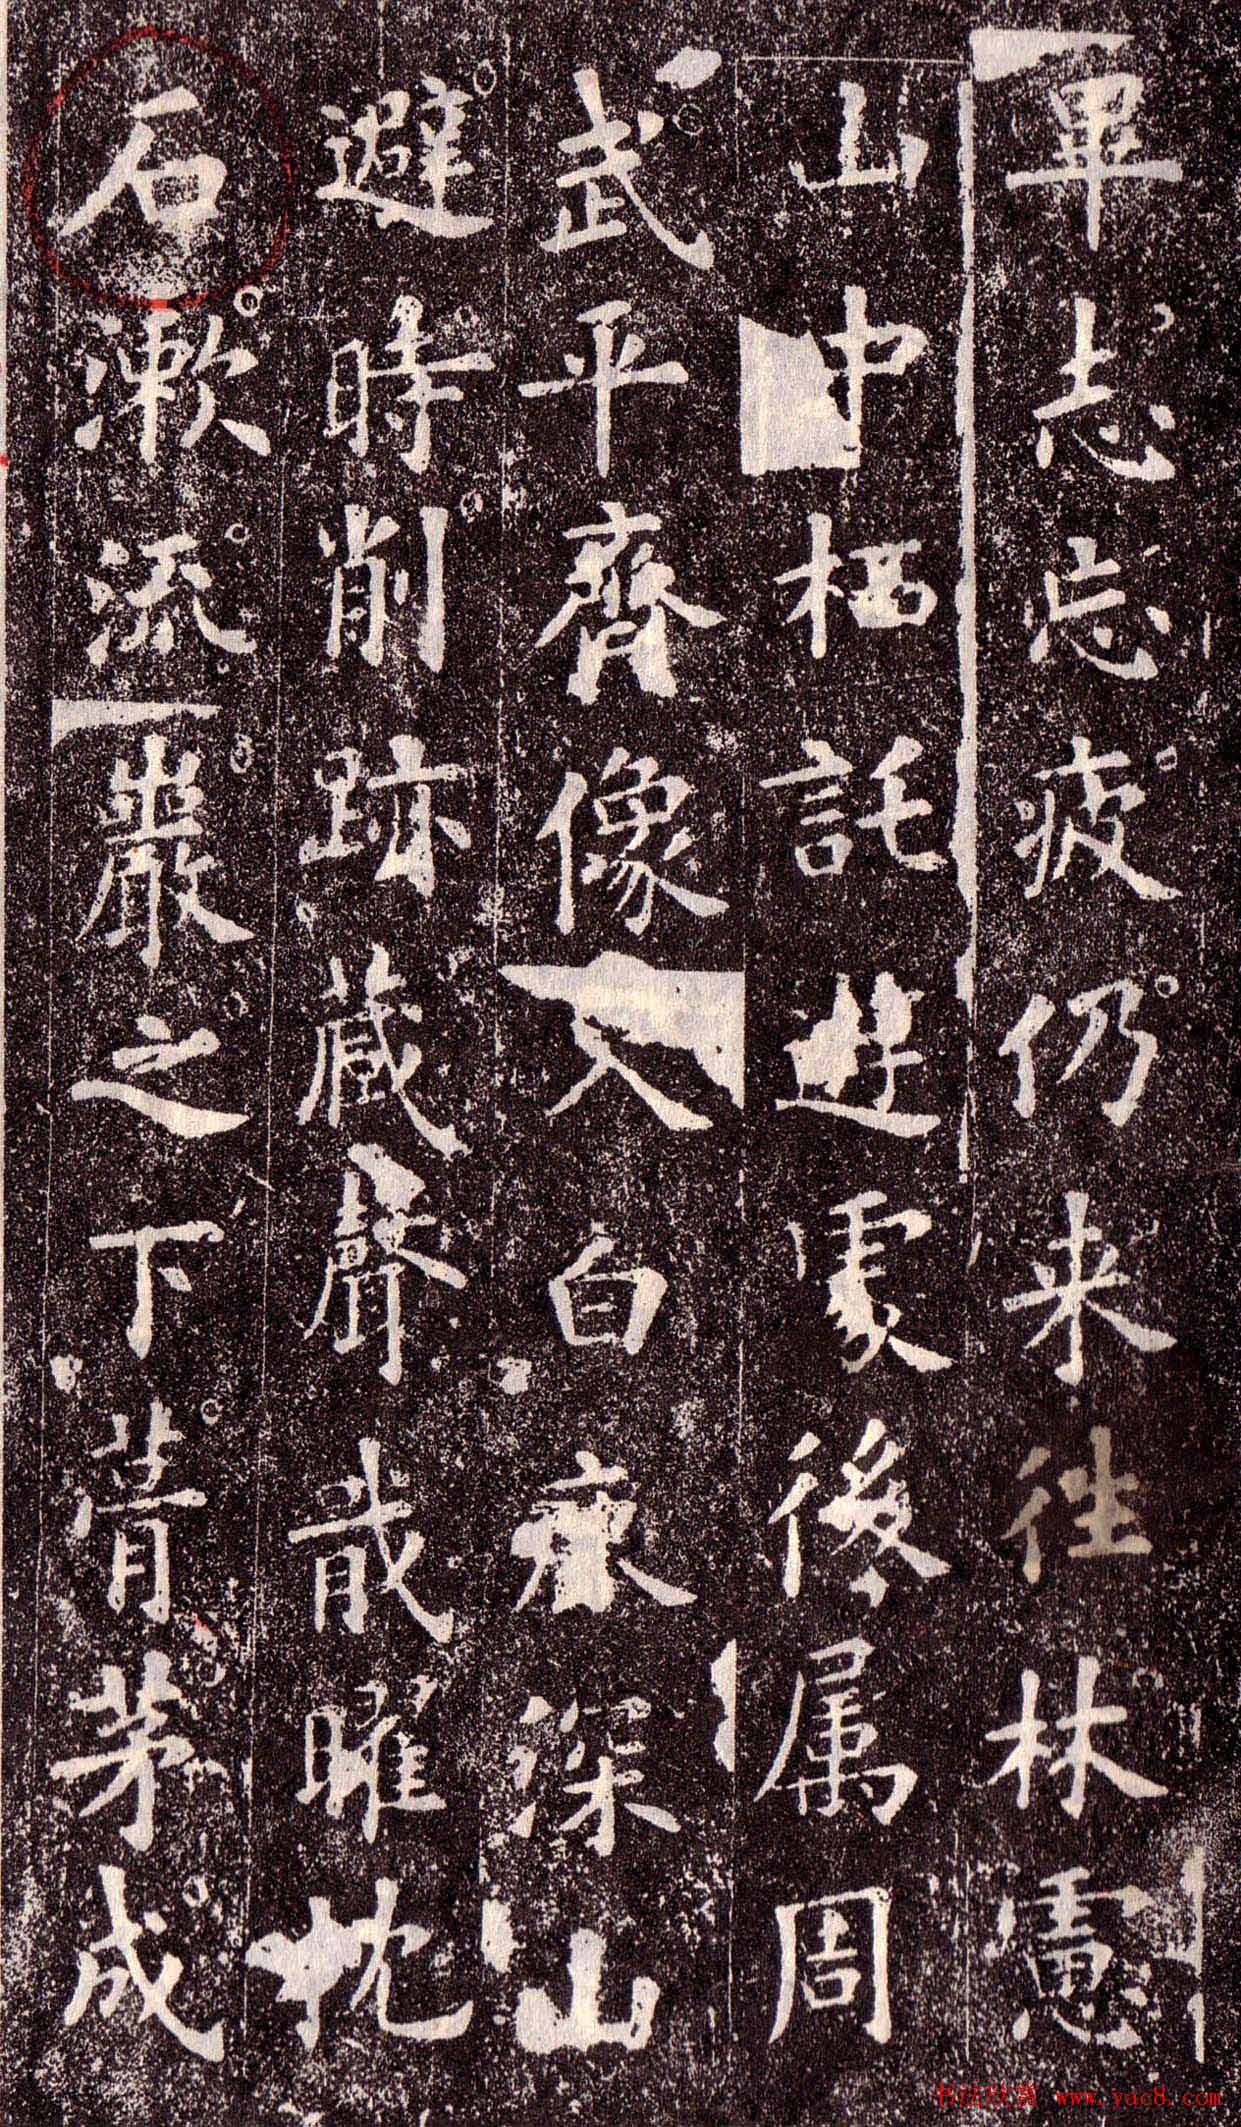 畢志忘疲仍来往林慮
山中栖託遊處後属周
武平齊像入白鹿深山
避時削跡藏聲戢曜枕
石漱流巖之下葺茅成
书法欣赏 www.yac8.com